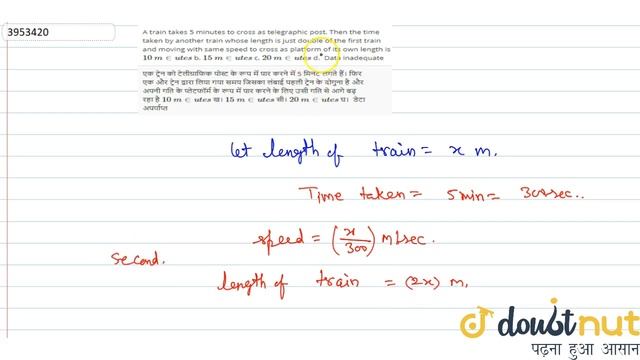 3953420
A train takes 5 minutes to cross as telegraphic post. Then the time
taken by another train whose length is just double of the first train
and moving with same speed to cross as platform of its own length is
10 m ∈ utes b. 15 m ∈ utes c. 20 m ∈ utes d. Data inadequate
एक ट्रेन को टेलीग्राफिक पोस्ट के रूप में पार करने में 5 मिनट लगते हैं। फिर
एक और ट्रेन द्वारा लिया गया समय जिसका लंबाई पहली ट्रेन के दोगुना है और
अपनी गति के प्लेटफॉर्म के रूप में पार करने के लिए उसी गति से आगे बढ़
रहा है 10 m ∈ utes ख। 15 m ∈ utes सी। 20 m ∈ utes घ। डेटा
अपर्याप्त
Let length of train = x m.
Time taken = 5 min = 300 sec..
speed = (x/300) m/sec.
second.
length of train = (2x) m.
doubtnut
पढ़ना हुआ आसान